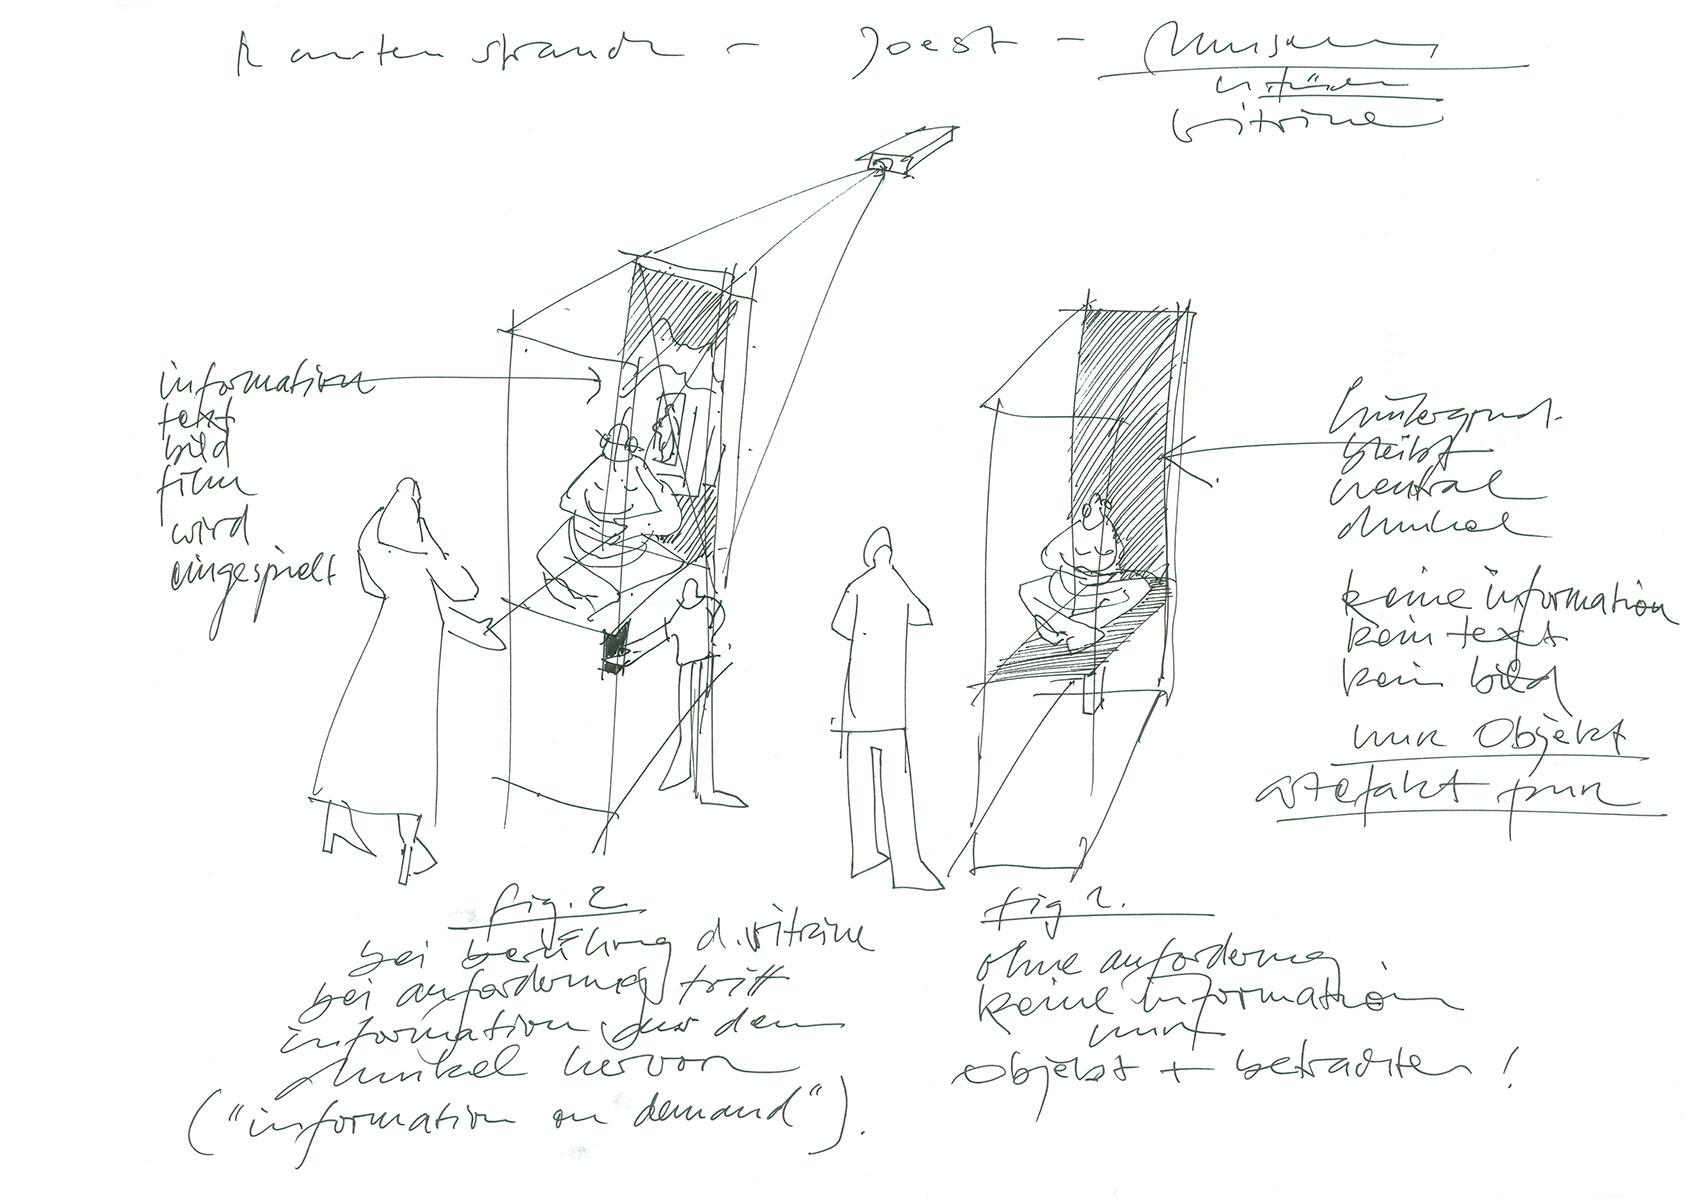 Rautenstrauch - Joest - Museum
vitrine
information
text
bild
film
wird
eingespielt
hintergrund
bleibt
neutral
dunkel
keine information
kein text
kein bild
nur Objekt
artefakt pur
fig. 2
bei berührung d. vitrine
bei anforderung tritt
information aus dem
dunkel hervor
("information on demand").
fig 1.
ohne anforderung
keine information
nur
Objekt + betrachter!